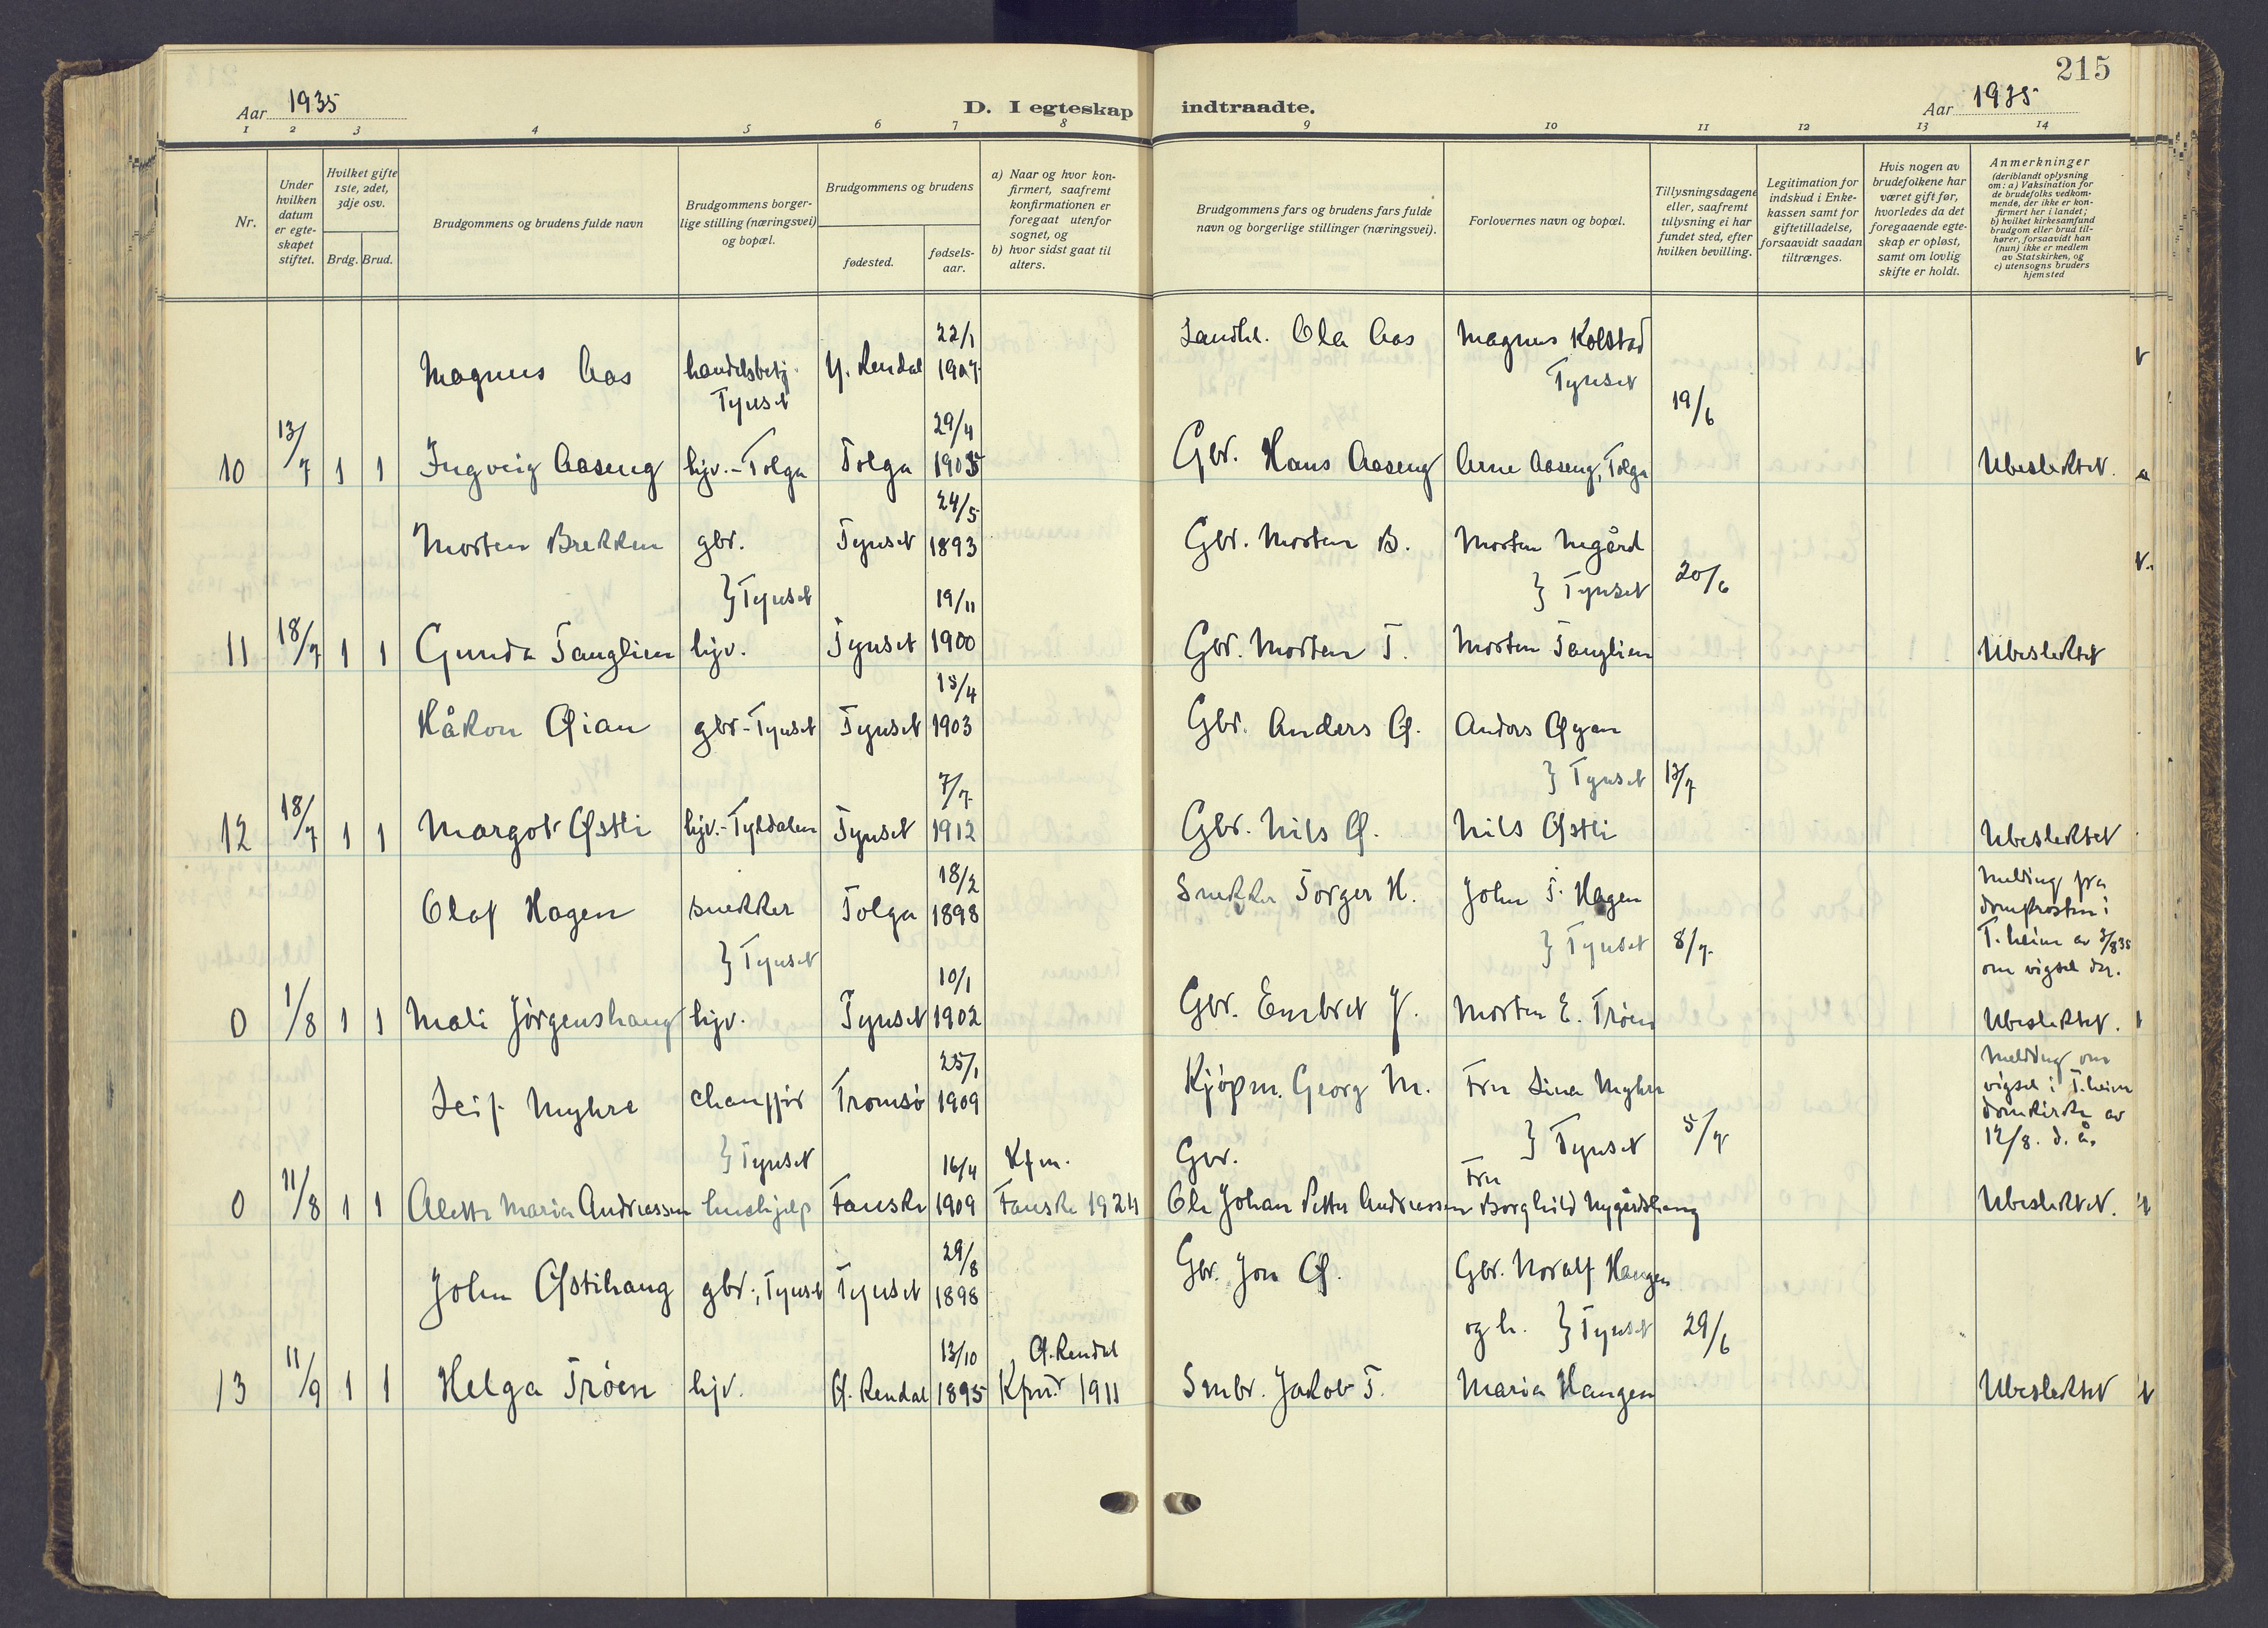 215
Aar 1935
D. I egteskap indtraadte.
Aar 1935
1 2 3 4 5 6 7 8 9 10 11 12 13 14
Nr.
Under hvilken datum er egte-skapet stiftet.
Hvilket gifte 1ste, 2det, 3dje osv.
Brdg. Brud.
Brudgommens og brudens fulde navn
Brudgommens borger-lige stilling (næringsvei) og bopæl.
Brudgommens og brudens
fødested.
fødsels-aar.
a) Naar og hvor kon-firmert, saafremt konfirmationen er foregaat utenfor sognet, og
b) hvor sidst gaat til alters.
Brudgommens fars og brudens fars fulde navn og borgerlige stillinger (næringsvei).
Forlovernes navn og bopæl.
Tillysningsdagene eller, saafremt tillysning ei har fundet sted, efter hvilken bevilling.
Legitimation for indskud i Enke-kassen samt for giftetilladelse, forsaavidt saadan tiltrænges.
Hvis nogen av brudefolkene har været gift før, hvorledes da det foregaaende egte-skap er opløst, samt om lovlig skifte er holdt.
Anmerkninger (deriblandt oplysning om: a) Vaksination for de brudefolks vedkom-mende, der ikke er kon-firmert her i landet; b) hvilket kirkesamfund brudgom eller brud til-hører, forsaavidt han (hun) ikke er medlem av Statskirken, og c) utensogns bruders hjemsted
Magnus Aas handelsbetj. Tynset Y. Rendal 22/1 1907 Landh. Ola Aas Magnus Kolstad Tynset
19/6
10 13/7 1 1 Ingveig Aaseng hjv.-Tolga Tolga 29/4 1905 Gbr. Hans Aaseng Arne Aaseng, Tolga Ubeslektet.
Morten Brekken gbr. Tynset 24/5 1893 Gbr. Morten B. Morten Negård
} Tynset } Tynset 20/6
11 18/7 1 1 Gunda Tanglien hjv. Tynset 19/11 1900 Gbr. Morten T. Morten Tanglien Ubeslektet
Håkon Øian gbr-Tynset Tynset 15/4 1903 Gbr. Anders Ø. Anders Øyan
} Tynset 13/7
12 18/7 1 1 Margot Østli hjv.-Tyldalen Tynset 7/7 1912 Gbr. Nils Ø. Nils Østli Ubeslektet
Olaf Hagen snekker Tolga 18/2 1898 Snekker Torger H. John T. Hagen
} Tynset } Tynset 8/7
Melding fra
domprosten i
T.heim av 3/8 35
om vigsel der.
0 1/8 1 1 Mali Jørgenshaug hjv. Tynset 10/1 1902 Gbr. Embret J. Morten E. Trøen Ubeslektet.
Leif Myhre chauffør Tromsø 25/1 1909 Kjøpm. Georg M. Fru Lina Myhre
} Tynset } Tynset 5/7
Melding om
vigsel i T.heim
domkirke av
12/8. d.å.
0 11/8 1 1 Alette Maria Andreassen hushjelp Fauske 16/4 1909 Kfm. Fauske 1924 Gbr. Ole Johan Petter Andreassen Fru Borghild Nygårdshaug Ubeslektet.
John Østihaug gbr., Tynset Tynset 29/8 1898 Gbr. Jon Ø. Gbr. Noralf Haugen
og h. } Tynset 29/6
13 11/9 1 1 Helga Trøen hjv. Ø. Rendal 13/10 1895 Kfm. Ø. Rendal 1911 Smbr. Jakob T. Maria Haugen Ubeslektet